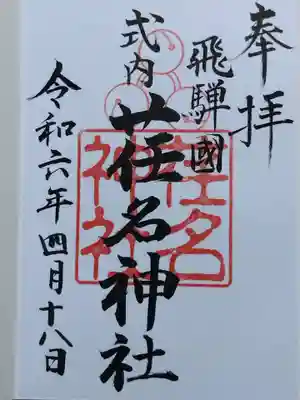 奉拝
飛騨國
式内
荏名神社
令和六年四月十八日
荏名
神社